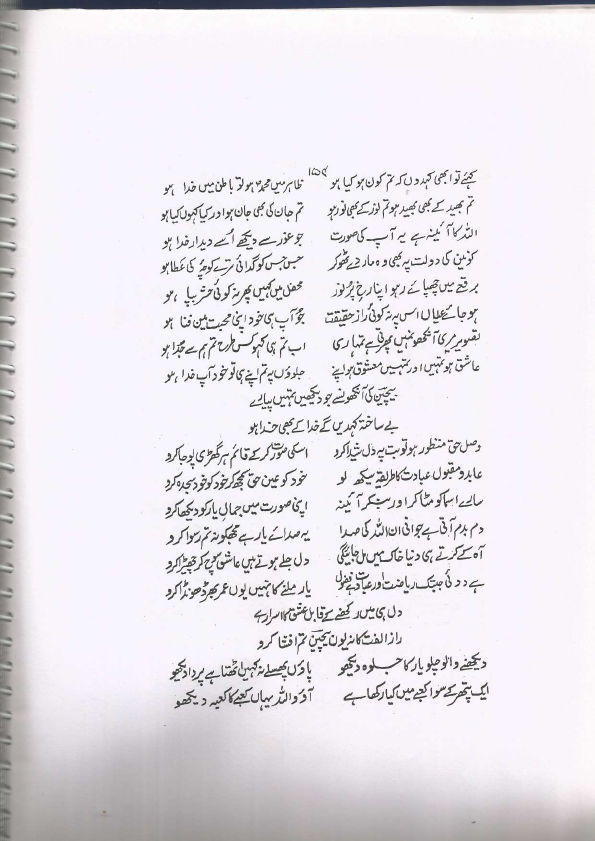 ۱۵۹
کہئے تو ابھی کہدوں کہ تم کون ہو کیا ہو ظاہر میں محمدؐ ہو تو باطن میں خدا ہو
تم بھید کے بھی بھید ہو تم نور کے بھی نور ہو تم جان کی بھی جان ہو اور کیا کہوں کیا ہو
اللہ کا آئینہ ہے یہ آپ کی صورت جو غور سے دیکھے اُسے دیدار خدا ہو
کونین کی دولت پہ بھی وہ مار دے ٹھوکر جس جس کو گدائی ترے کوچہ کی عطا ہو
برقعے میں چھپائے رہو اپنا رخ پُر نور محفل میں کہیں پھر نہ کوئی حشر بپا ہو
ہو جائے عیاں اس پہ نہ کوئی راز حقیقت جو آپ ہی خود اپنی محبت میں فنا ہو
تصویر مری آنکھو نمیں پھرتی ہے تمہاری اب تم ہی کہو کس طرح تم ہم سے جدا ہو
عاشق ہو تمہیں اور تمہیں معشوق ہو اپنے جلووں پہ تم اپنے ہی تو خود آپ فدا ہو
بیچین کی آنکھو نسے جو دیکھیں تمہیں پیارے
بے ساختہ کہدیں گے خدا کے بھی خدا ہو
وصل حق منظور ہو تو بت پہ دل شیدا کرو اسکی صورت کر کے قائم ہر گھڑی پوجا کرو
عابدو مقبول عبادت کا طریقہ سیکھ لو خود کو عین حق سمجھ کر خود کو خود سجدہ کرو
سارے اسما کو مٹا کر اور بنکر آئینہ اپنی صورت میں جمال یار کو دیکھا کرو
دم بدم آتی ہے جو انی ان اللہ کی صدا یہ صدائے یار ہے مجھکو نہ تم رسوا کرو
آہ کے کرتے ہی دنیا خاک میں مل جائیگی دل جلے ہوتے ہیں عاشق سوچ کر چھیڑا کرو
ہے دوئی جبتک ریاضت اور عبادت ہے فضول یار ملنے کا نہیں یوں عمر بھر ڈھونڈا کرو
دل ہی میں رکھنے کے قابل عشق کا اسرار ہے
راز الفت کا نہ یوں بیچین تم افشا کرو
دیکھنے والو چلو یار کا جلوہ دیکھو پاؤں پھسلے نہ کہیں اٹھتا ہے پردا دیکھو
ایک پتھر کے سوا کعبے میں کیا رکھا ہے آؤ واللہ یہاں کعبے کا کعبہ دیکھو